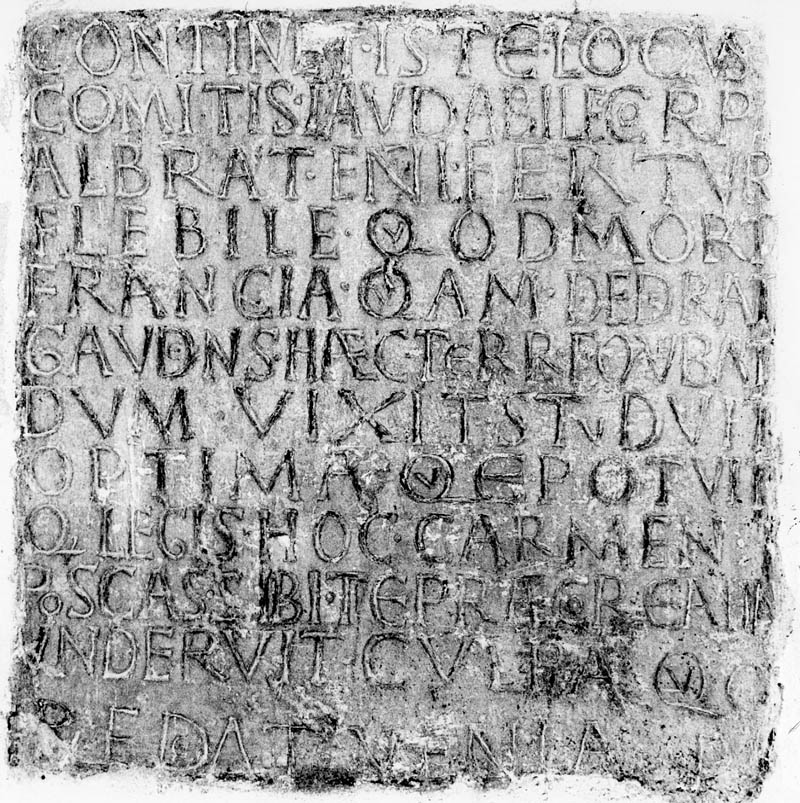 CONTINET·ISTE·LOCVS
COMITIS·LAVDABILE CRP
ALBRAT·ENI·FERTVR
FLEBILE·QVOD MORI
FRANCIA·QVAM·DEDRAT
GAVDNS·HÆC TERR
DVM VIXIT STVDVIT
OPTIMA QV E POTVIT
Q LEGIS·HOC·CARMEN
POSCAS·SIBI·TE PRECOR
VNDE RVIT CVLPA QVO
REDAT VENIA